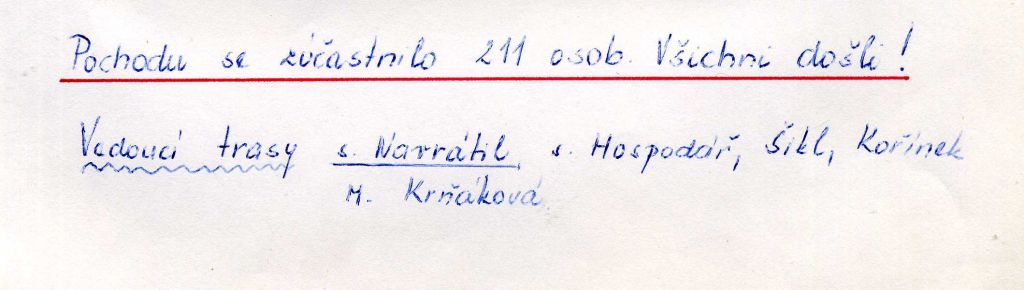 Pochodu se zúčastnilo 211 osob. Všichni došli!
Vedoucí trasy s. Navrátil s. Hospodář, Šikl, Kořínek
M. Krňáková